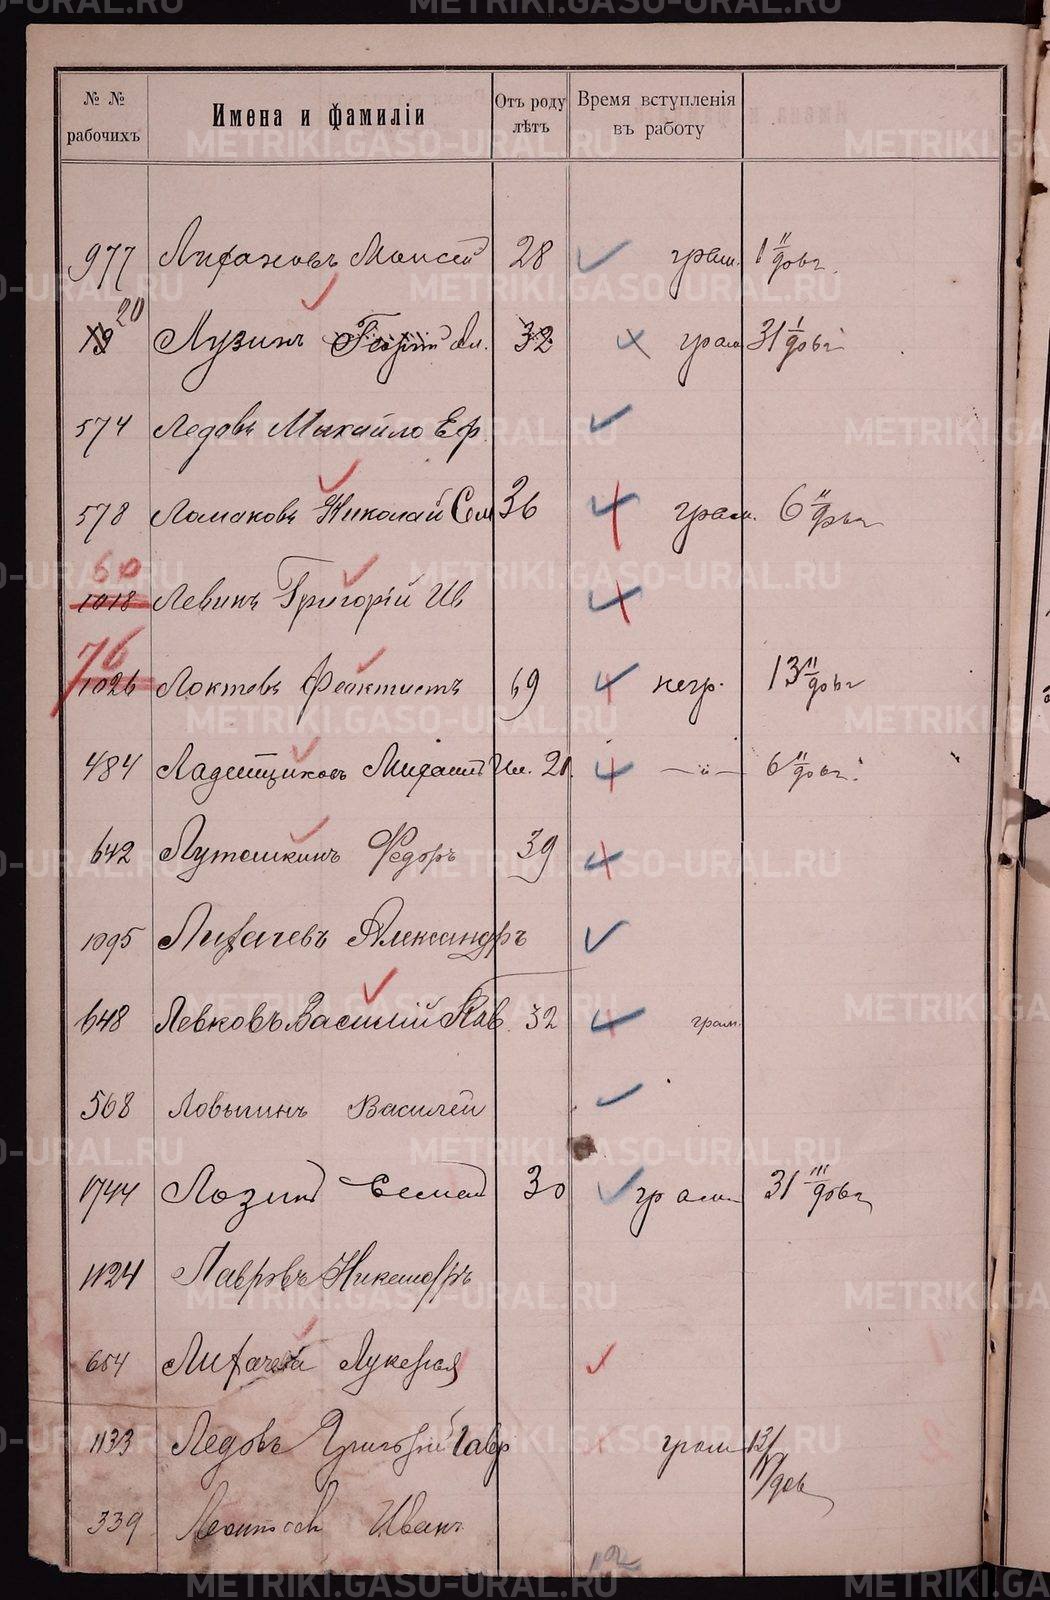 № № рабочихъ Имена и фамиліи Отъ роду лѣтъ Время вступленія въ работу
977 Лифановъ Моисей 28 грам. 1 II/довѣ.
20
Лузинъ Георгій Ал. 32 грам 31 I/довѣ
574 Ледовъ Михайло Еф.
578 Ломаковъ Николай Сем 36 грам. 6 II
60
1018 Левинъ Григорій Ив
76
1026 Локтевъ Феоктистъ 69 негр. 13 II/довѣ
484 Ладейщиковъ Михаилъ Ил. 20. —„— 6 II/довѣ.
642 Лутошкинъ Федоръ 39
1095 Лихачевъ Александръ
648 Левковъ Василій Пав. 32 грам.
568 Ловыгинъ Василій
1744 Лозинъ Семенъ 30 грам 31 III/довѣ
1124 Лавровъ Никаноръ
654 Лихачева Лукерья
1133 Ледовъ Григорій Гавр грам 13/дов
339 Иванъ
METRIKI.GASO-URAL.RU